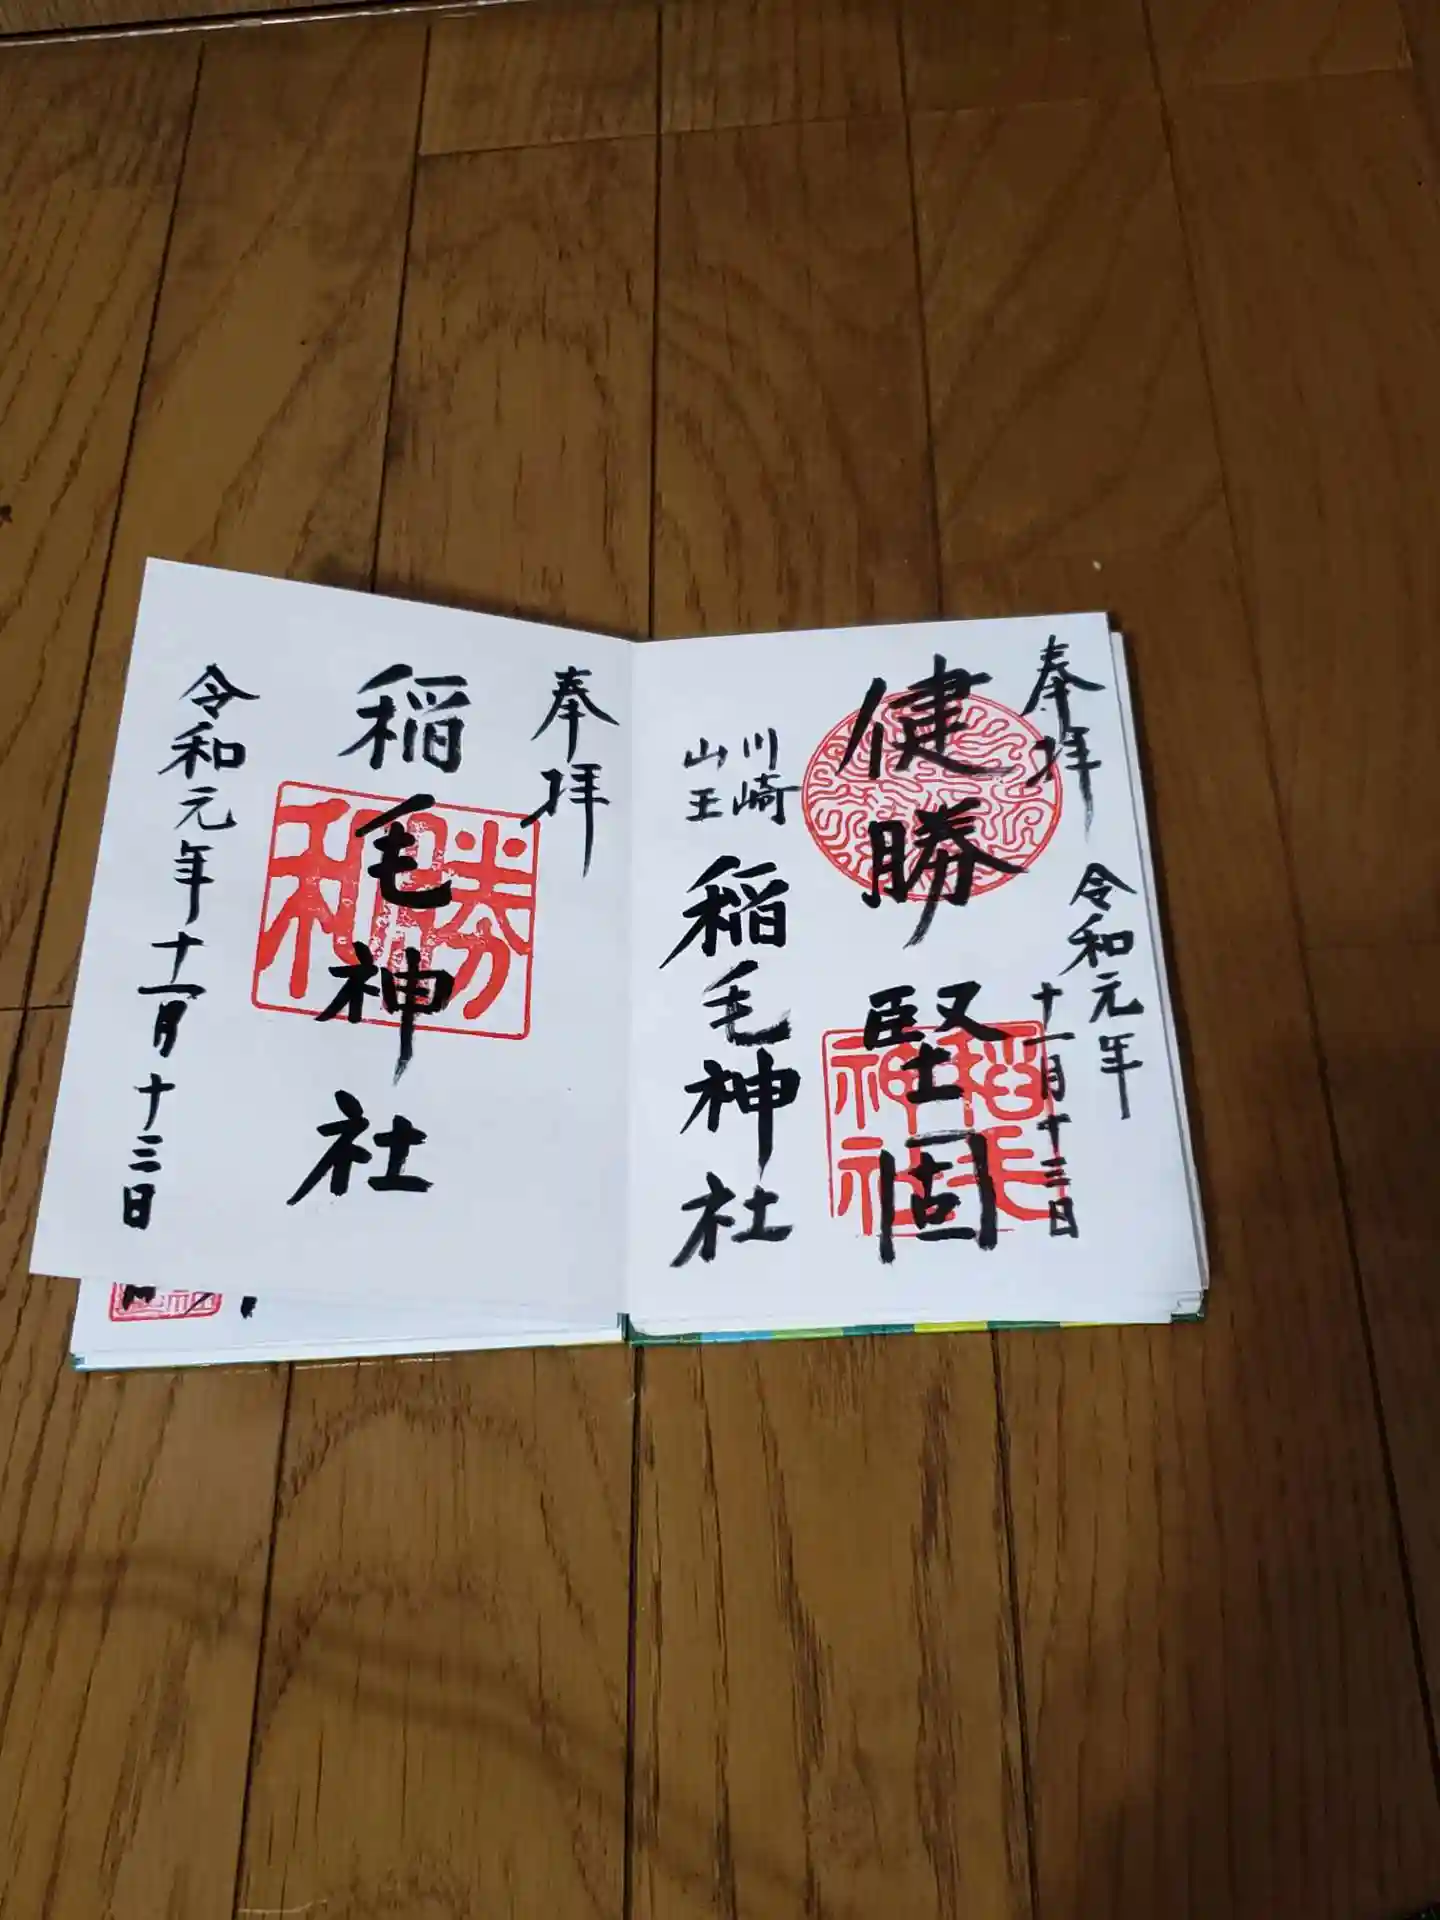 奉拝
令和元年
十一月十三日
健勝堅固
川崎
山王
稲毛神社
稲毛
神社
奉拝
稲毛神社
勝
和
令和元年十一月十三日